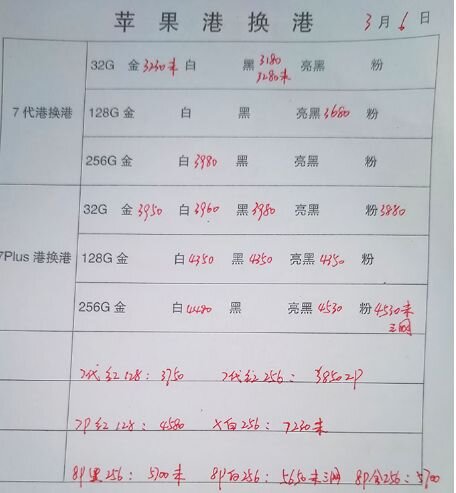 苹果港换港 3月6日
7代港换港
32G 金3230未 白 黑3180 3280未 亮黑 粉
128G 金 白 黑 亮黑3680 粉
256G 金 白3980 黑 亮黑 粉
7Plus 港换港
32G 金3950 白3960 黑3980 亮黑 粉3880
128G 金 白4350 黑4350 亮黑4350 粉
256G 金 白4480 黑 亮黑4530 粉4530未三网
7代红128：3750 7代红256：3850 2P
7P红128：4580 X白256：7230未
8P黑256：5700未 8P白256：5650未三网 8P金256：5700